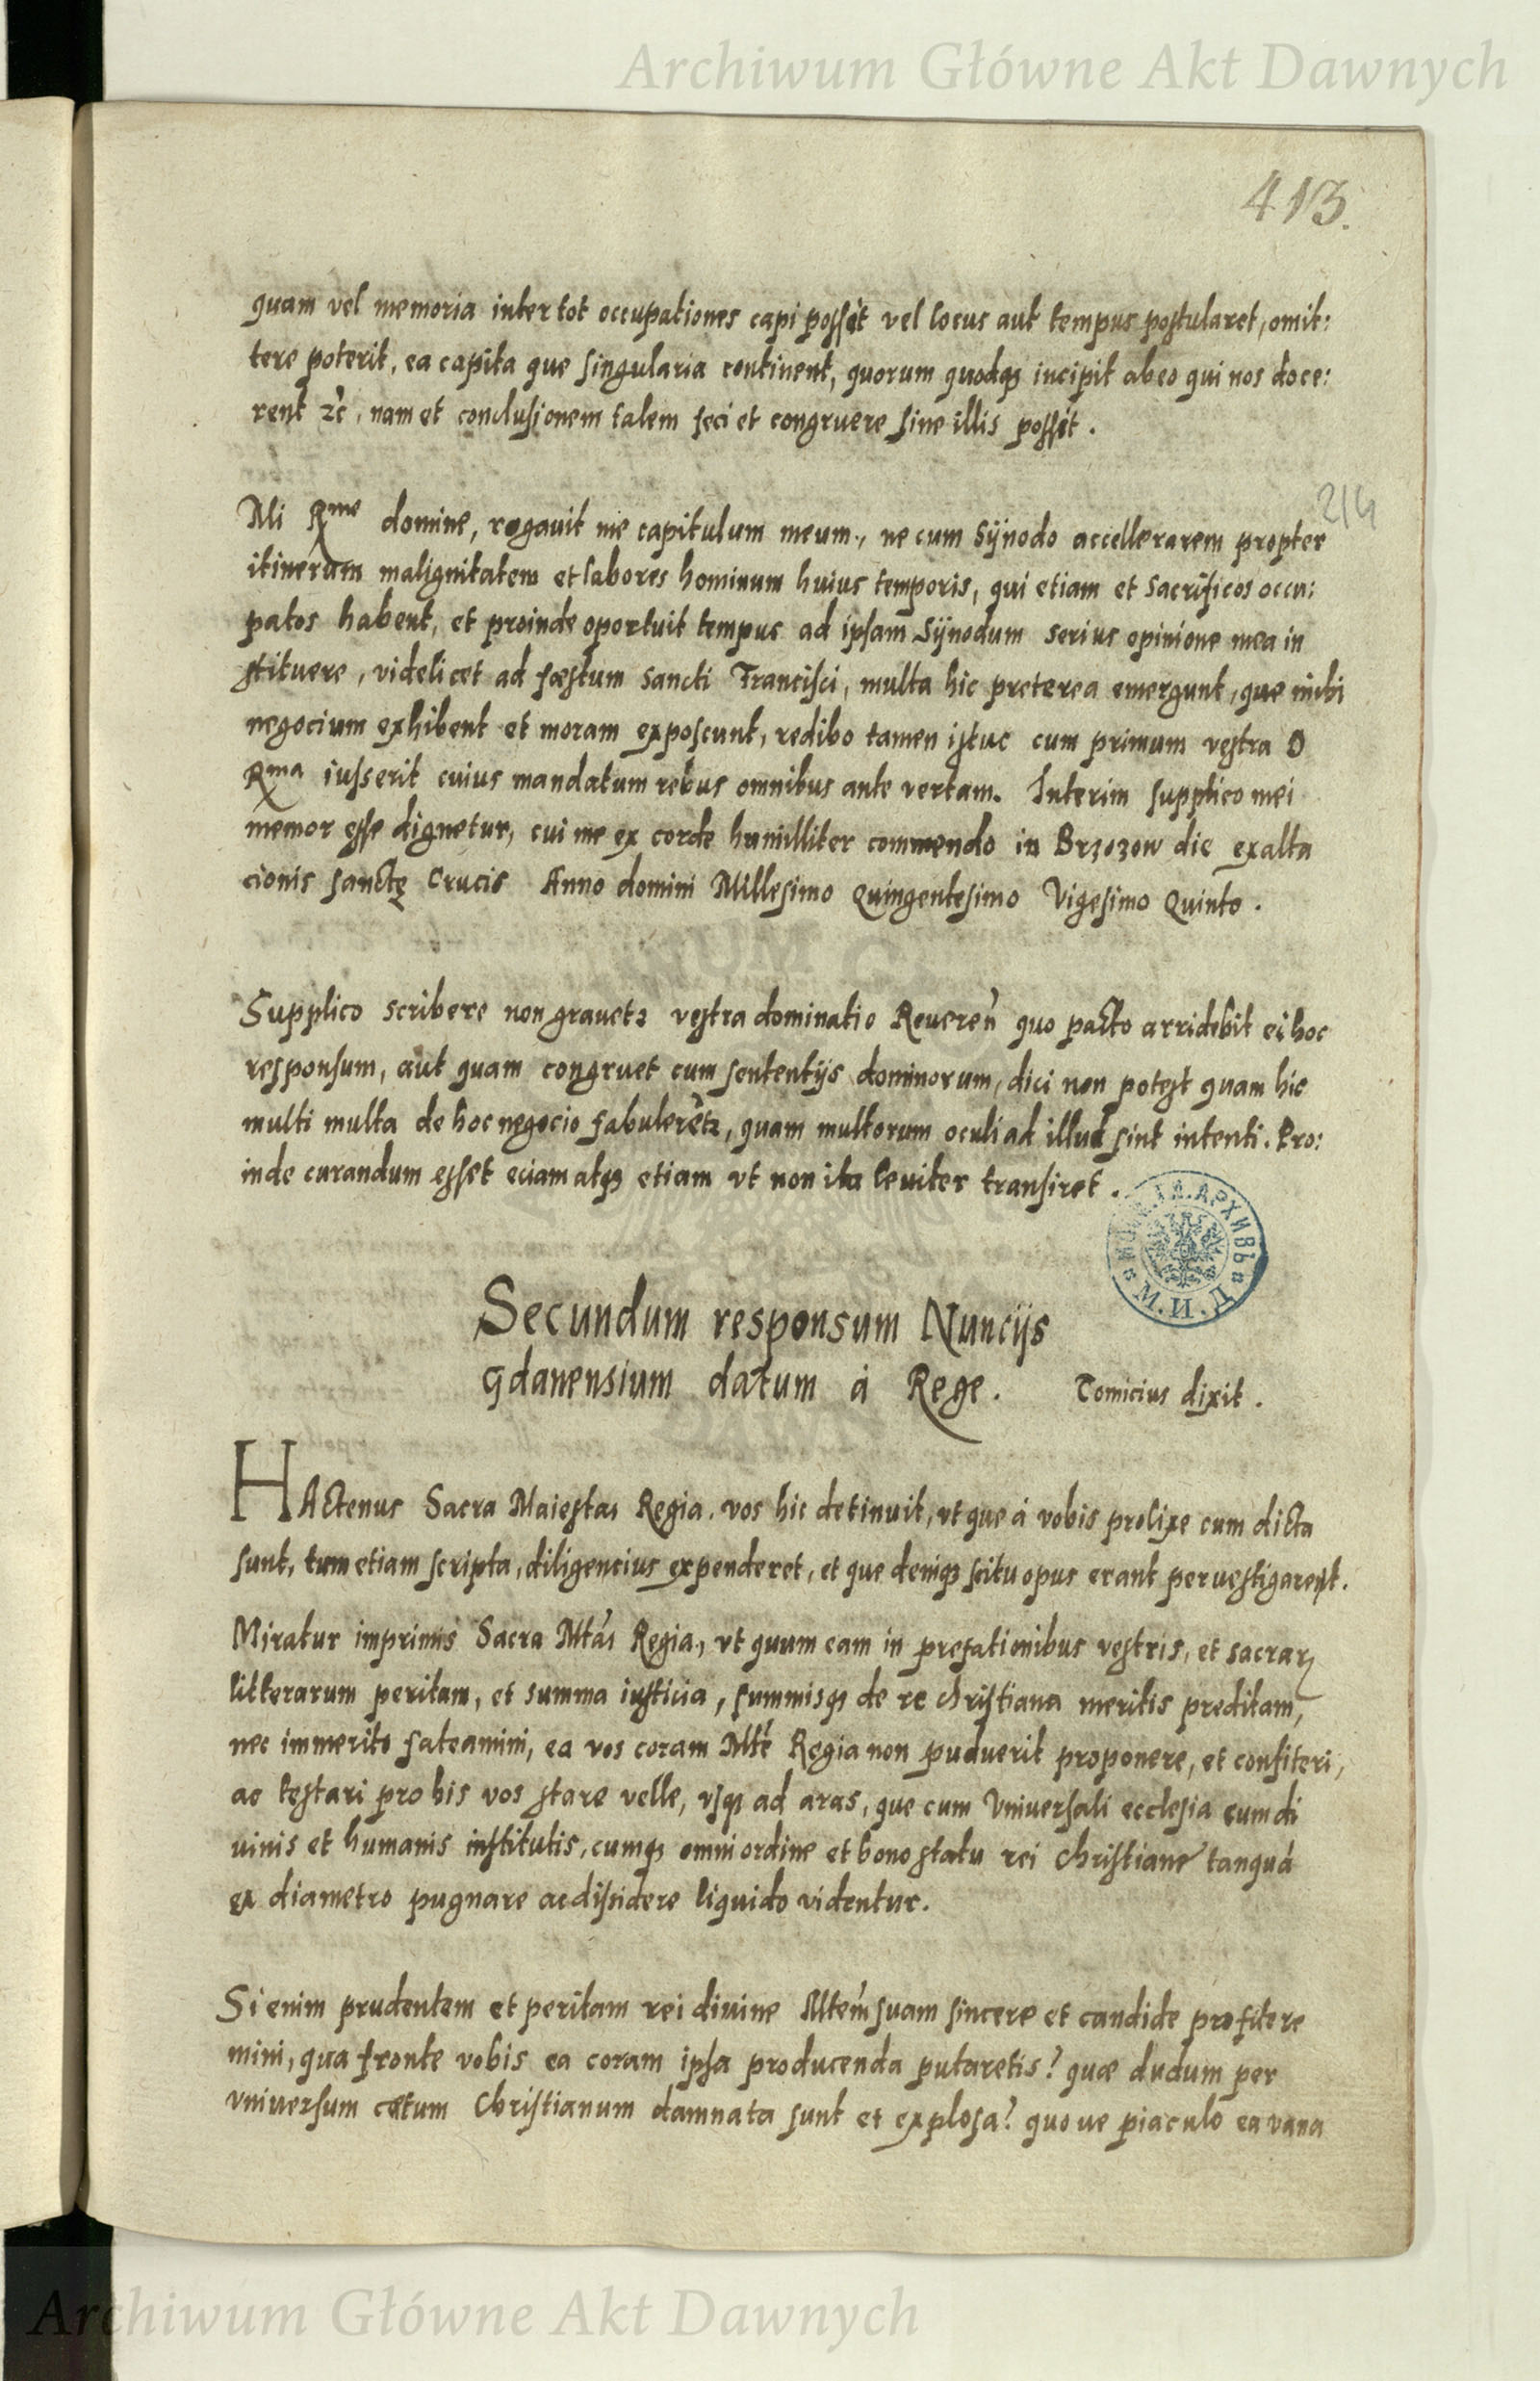 Archiwum Główne Akt Dawnych
413.
quam vel memoria inter tot occupationes capi possit vel locus aut tempus postularet, omit:
tere poterit, ea capita que singularia continent, quorum quodqȝ incipit ab eo qui nos doce:
rent ꝛc̃, nam et conclusionem talem feci et congruere sine illis possit.
214
Mi Rme domine, rogauit me capitulum meum, ne cum Sÿnodo accellerarem propter
itinerum malignitatem et labores hominum huius temporis, qui etiam et sacrificos occu:
patos habent, et proinde oportuit tempus ad ipsam Sÿnodum serius opinione mea in
stituere, videlicet ad fæstum sancti Francisci, multa hic preterea emergunt, que mihi
negocium exhibent et moram exposcunt, redibo tamen istuc cum primum vestra D
Rma iusserit cuius mandatum rebus omnibus ante vertam. Interim supplico mei
memor esse dignetur, cui me ex corde humilliter commendo in Brzozow die exalta
cionis sanctę Crucis Anno domini Millesimo Quingentesimo Vigesimo Quinto.
Supplico scribere non grauetꝛ vestra dominatio Reueren̄ quo pacto arridebit ei hoc
responsum, aut quam congruet cum sententijs dominorum, dici non potest quam hic
multi multa de hoc negocio fabulerētꝛ, quam multorum oculi ad illud sint intenti. Pro:
inde curandum esset eciam atqȝ etiam vt non ita leuiter transiret.
М.И.Д.
Secundum responsum Nuncijs
Gdanensium datum á Rege. Tomicius dixit.
HActenus Sacra Maiestas Regia, vos hic detinuit, vt que á vobis prolixe cum dicta
sunt, tum etiam scripta, diligencius expenderet, et que deniqȝ scitu opus erant peruestigarent.
Miratur imprimis Sacra Mtás Regia, vt quum eam in prefationibus vestris, et sacrarꝝ
litterarum peritam, et summa iusticia, summisqȝ de re christiana meritis preditam,
nec immerito fateamini, ea vos coram Mté Regia non puduerit proponere, et confiteri,
ac testari pro his vos stare velle, vsqȝ ad aras, que cum Vniuersali ecclesia cum di
uinis et humanis institutis, cumqȝ omni ordine et bono statu rei christiane tanquá
ex diametro pugnare ac dissidere liquido videntur.
Si enim prudentem et peritam rei diuine Mtem̃ suam sincere et candide profitere
mini, qua fronte vobis ea coram ipsa producenda putaretis? quæ dudum per
vniuersum cœtum Christianum damnata sunt et explosa? quo ue piaculo ea vana
Archiwum Główne Akt Dawnych